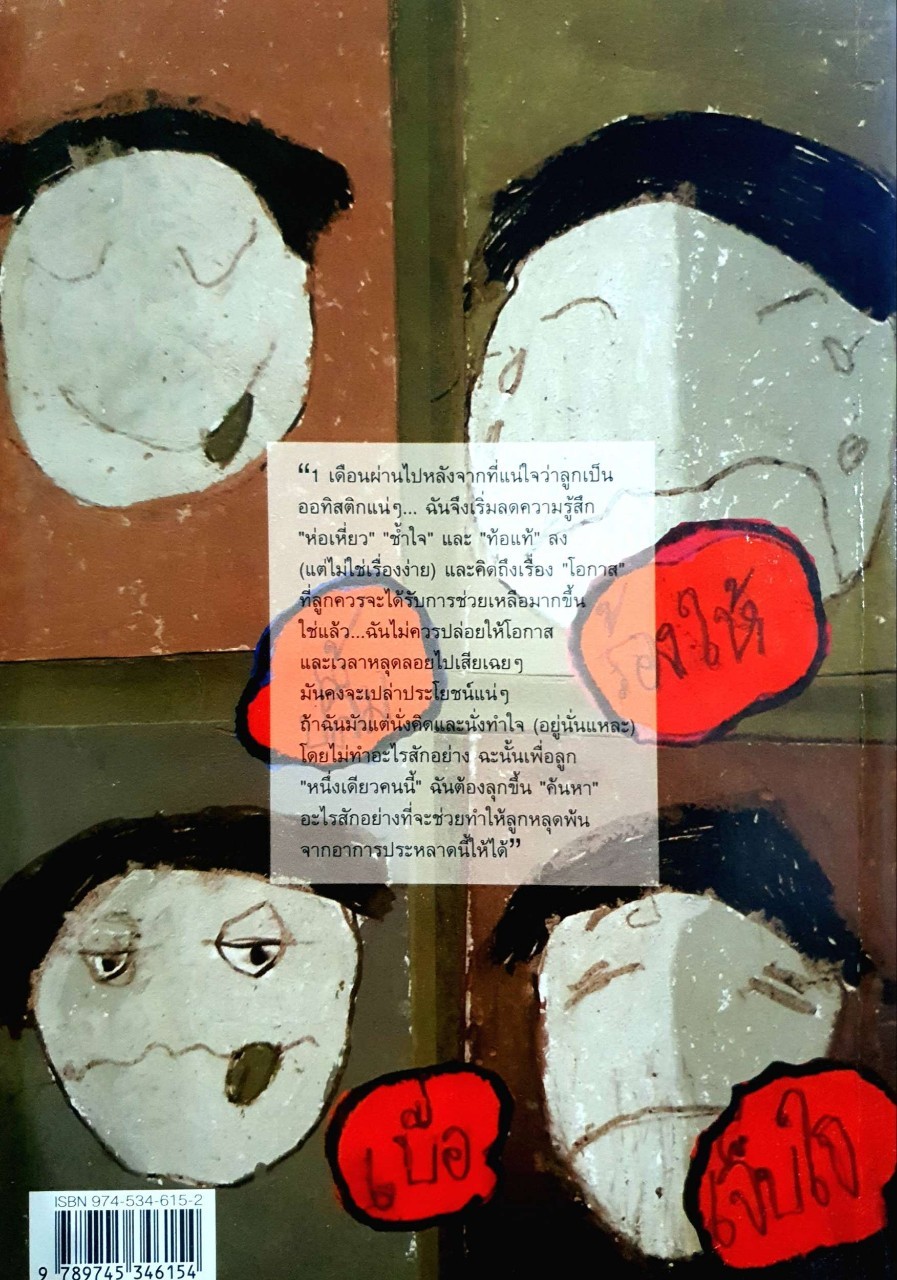 “1 เดือนผ่านไปหลังจากที่แน่ใจว่าลูกเป็น
ออทิสติกแน่ๆ... ฉันจึงเริ่มลดความรู้สึก
"ห่อเหี่ยว" "ช้ำใจ" และ "ท้อแท้" ลง
(แต่ไม่ใช่เรื่องง่าย) และคิดถึงเรื่อง "โอกาส"
ที่ลูกควรจะได้รับการช่วยเหลือมากขึ้น
ใช่แล้ว...ฉันไม่ควรปล่อยให้โอกาส
และเวลาหลุดลอยไปเสียเฉยๆ
มันคงจะเปล่าประโยชน์แน่ๆ
ถ้าฉันมัวแต่นั่งคิดและนั่งทำใจ (อยู่นั่นแหละ)
โดยไม่ทำอะไรสักอย่าง ฉะนั้นเพื่อลูก
"หนึ่งเดียวคนนี้" ฉันต้องลุกขึ้น "ค้นหา"
อะไรสักอย่างที่จะช่วยทำให้ลูกหลุดพ้น
จากอาการประหลาดนี้ให้ได้”
ร้องไห้
เบื่อ
เจ็บใจ
ISBN 974-534-615-2
9 789745 346154